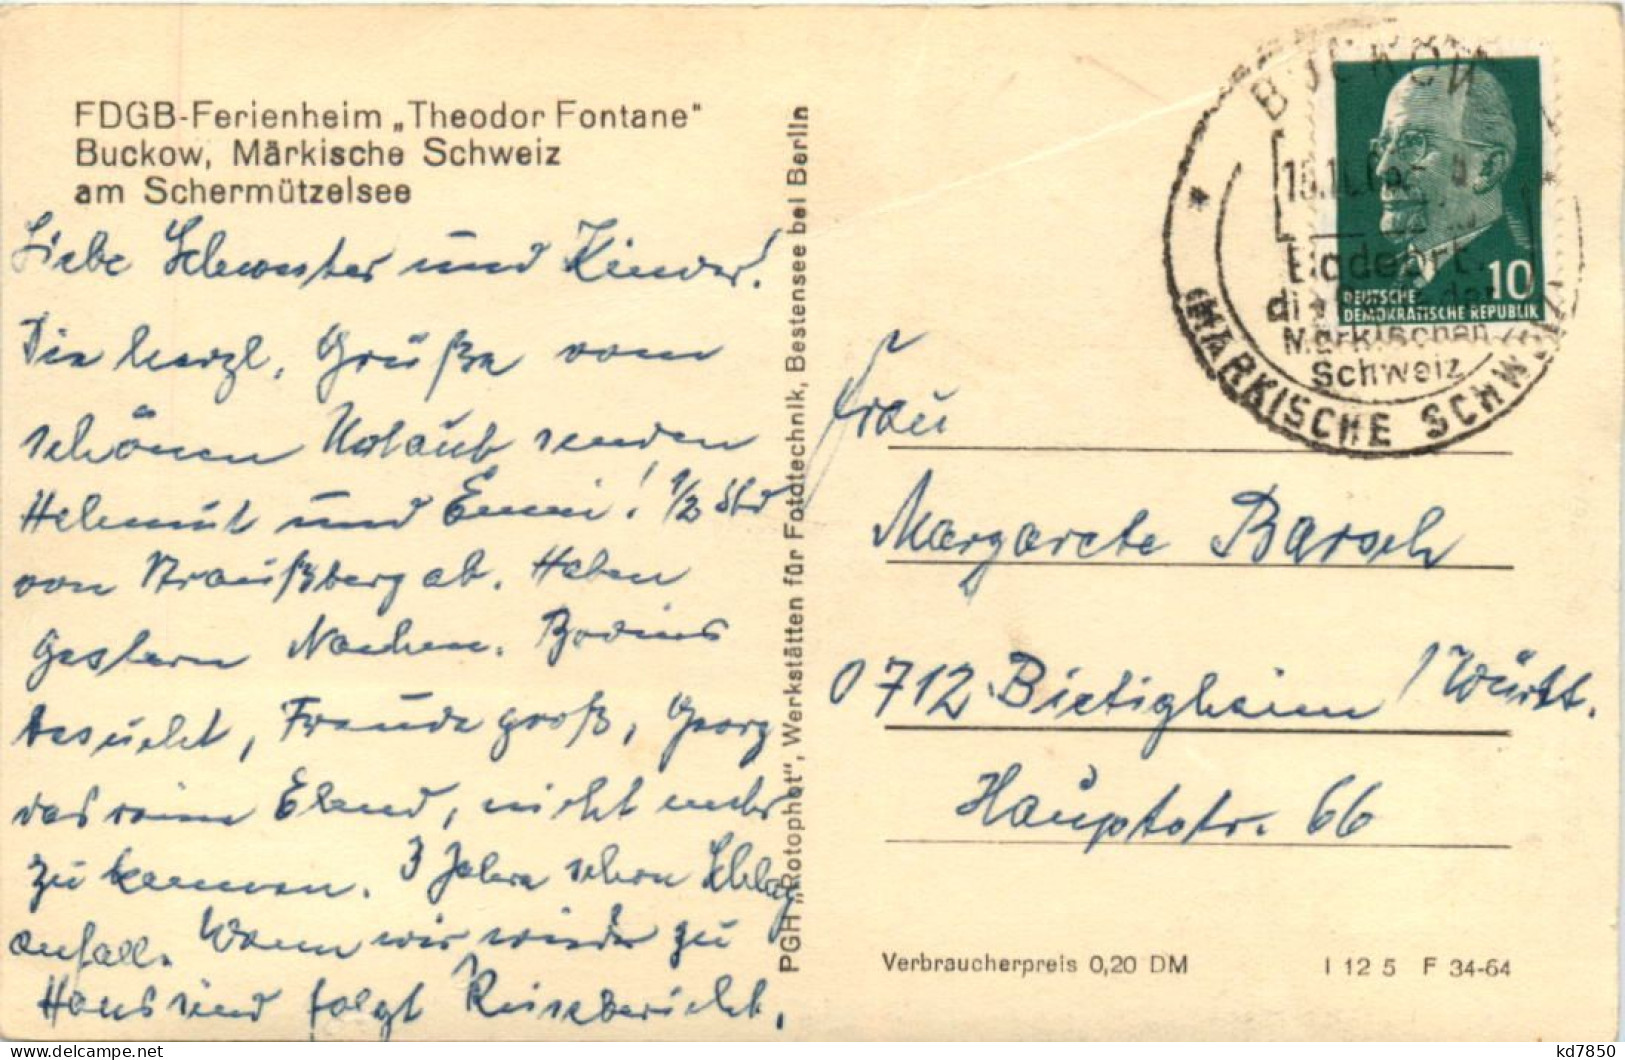 FDGB-Ferienheim „Theodor Fontane"
Buckow, Märkische Schweiz
am Schermützelsee
Liebe Schwester und Kinder!
Die herzl. Grüße vom
schönen Urlaub senden
Helmut und Emmi! 1/2 Std
von Straußberg ab. Haben
gestern Nachm.
besucht, Freude groß, Georg
das reine Elend, nicht mehr
zu kennen. 3 Jahre schon Schlag
anfall. Wenn wir wieder zu
Haus sind folgt Reisebericht.
PGH „Rotophot", Werkstätten für Fototechnik, Bestensee bei Berlin
BUCKOW
(MÄRKISCHE SCHWEIZ)
Märkischen
Schweiz
10
DEUTSCHE
DEMOKRATISCHE REPUBLIK
Frau
Margarete Barsch
0712 Bietigheim / Württ.
Hauptstr. 66
Verbraucherpreis 0,20 DM
I 12 5 F 34-64
kd7850